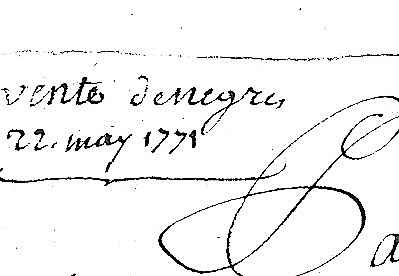 vente de negres
22. may 1771